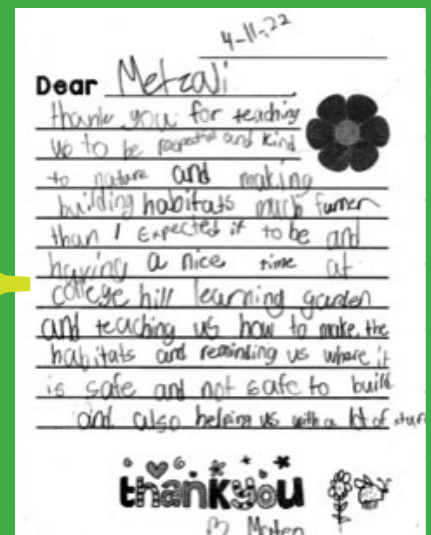 4-11-22
Dear Metzali
thank you for teaching
us to be respectful and kind
to nature and making
building habitats much funner
than I expected it to be and
having a nice time at
college hill learning garden
and teaching us how to make the
habitats and reminding us where it
is safe and not safe to build
and also helping us with a lot of stuff
thank you
Mateo